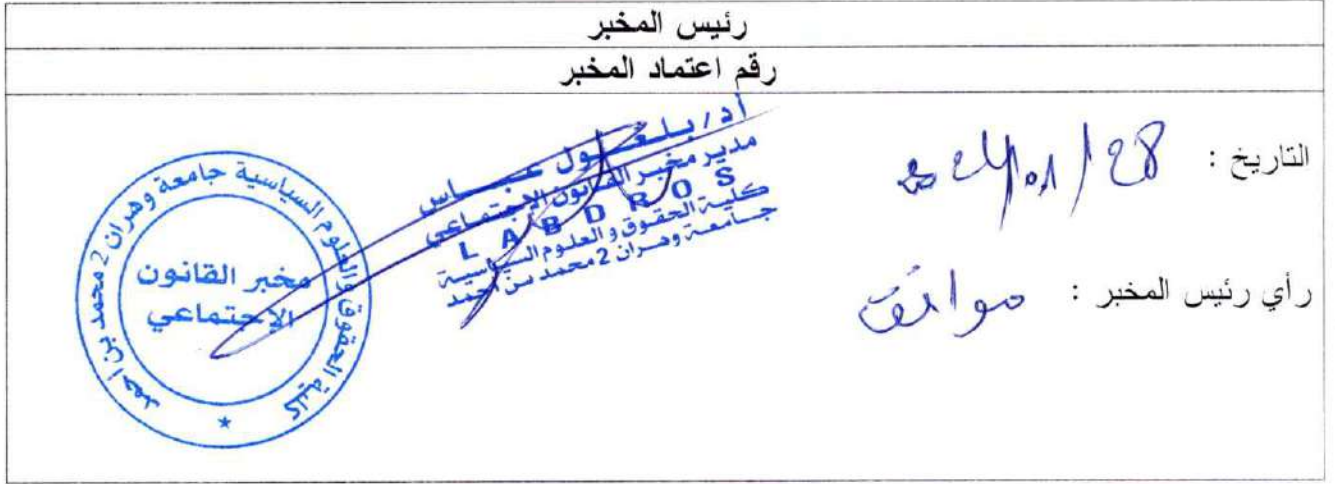 رئيس المخبر
رقم اعتماد المخبر
التاريخ : 28/01/
رأي رئيس المخبر : موافق
أد/بلعول عباس
مدير مخبر القانون الإجتماعي
L A B D R O S
كلية الحقوق و العلوم السياسية
جامعة وهران 2 محمد بن أحمد
كلية الحقوق والعلوم السياسية جامعة وهران 2 محمد بن احمد
مخبر القانون
الإجتماعي